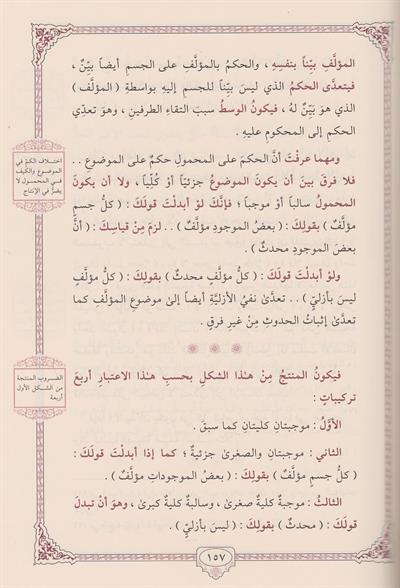 المؤلَّفِ بيِّناً بنفسِهِ ، والحكمُ بالمؤلَّفِ على الجسمِ أيضاً بيِّنٌ ،
فيتعدَّى الحكمُ الذي ليسَ بيِّناً للجسمِ إليهِ بواسطةِ ( المؤلَّف )
الذي هوَ بَيِّنٌ لهُ ، فيكونُ الوسطُ سببَ التقاءِ الطرفينِ ، وهوَ تعدِّي
الحكمِ إلى المحكومِ عليهِ .
ومهما عرفْتَ أنَّ الحكمَ على المحمولِ حكمٌ على الموضوعِ . .
فلا فرقَ بينَ أن يكونَ الموضوعُ جزئيّاً أوْ كُلِّيّاً ، ولا أن يكونَ
المحمولُ سالباً أوْ موجباً ؛ فإنَّكَ لوْ أبدلْتَ قولَكَ : ( كلُّ جسمٍ
مؤلَّفٌ ) بقولِكَ : ( بعضُ الموجودِ مؤلَّفٌ ) . . لزمَ مِنْ قياسِكَ : ( أنَّ
بعضَ الموجودِ محدثٌ ) .
ولوْ أبدلْتَ قولَكَ : ( كلُّ مؤلَّفٍ محدثٌ ) بقولِكَ : ( كلُّ مؤلَّفٍ
ليسَ بأزليٍّ ) . . تعدَّىٰ نفيُ الأزليَّةِ أيضاً إلىٰ موضوعِ المؤلَّفِ كما
تعدَّىٰ إثباتُ الحدوثِ مِنْ غيرِ فرقٍ .
فيكونُ المنتجُ مِنْ هـٰذا الشكلِ بحسبِ هـٰذا الاعتبارِ أربعَ
تركيباتٍ :
الأوَّلُ : موجبتانِ كليتانِ كما سبقَ .
الثاني : موجبتانِ والصغرىٰ جزئيةٌ ؛ كما إذا أبدلْتَ قولَكَ :
( كلُّ جسمٍ مؤلَّفٌ ) بقولِكَ : ( بعضُ الموجوداتِ مؤلَّفٌ ) .
الثالثُ : موجبةٌ كليةٌ صغرىٰ ، وسالبةٌ كليةٌ كبرىٰ ، وهوَ أنْ تبدلَ
قولَكَ : ( محدثٌ ) بقولِكَ : ( ليسَ بأزليٍّ ) .
اختلاف الكمّ في
الموضوع والكيف
في المحمول لا
يضرُّ في الإنتاج
الضروب المنتجة
من الشكل الأول
أربعة
١٥٧